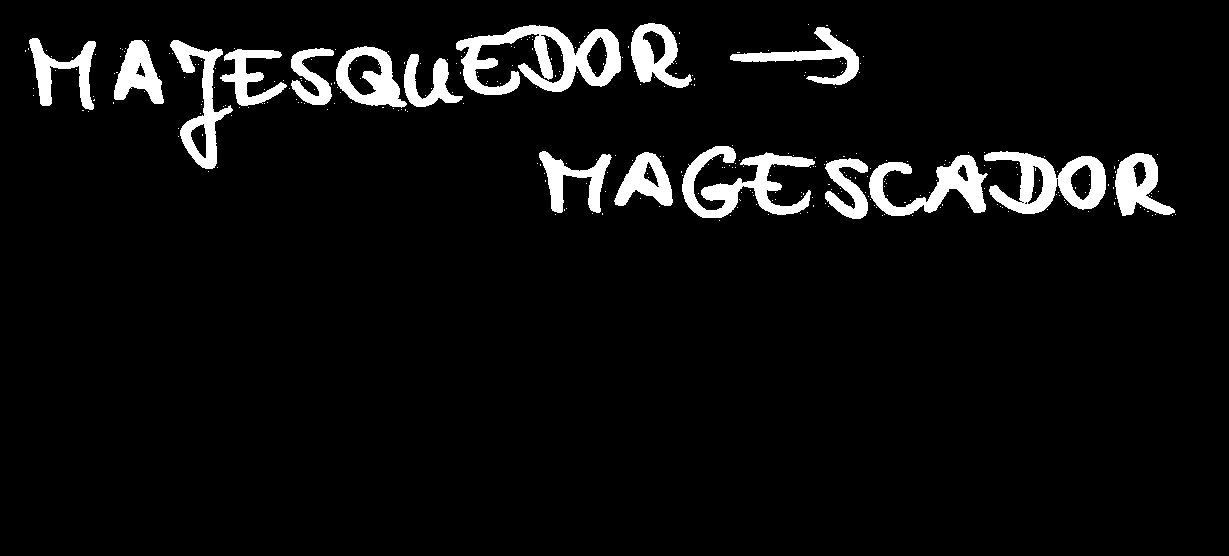 MAJESQUEDOR →
MAGESCADOR